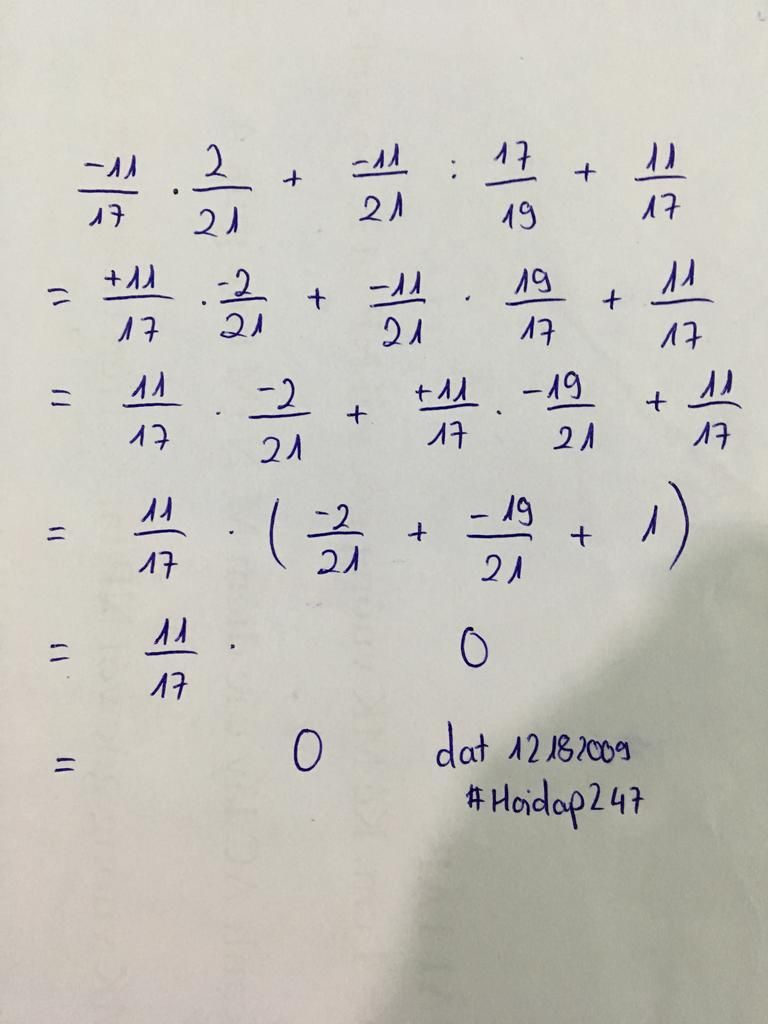 -11/17 . 2/21 + -11/21 : 17/19 + 11/17
= +11/17 . -2/21 + -11/21 . 19/17 + 11/17
= 11/17 . -2/21 + +11/17 . -19/21 + 11/17
= 11/17 . ( -2/21 + -19/21 + 1 )
= 11/17 . 0
= 0
dat 12182009
#Hoidap247